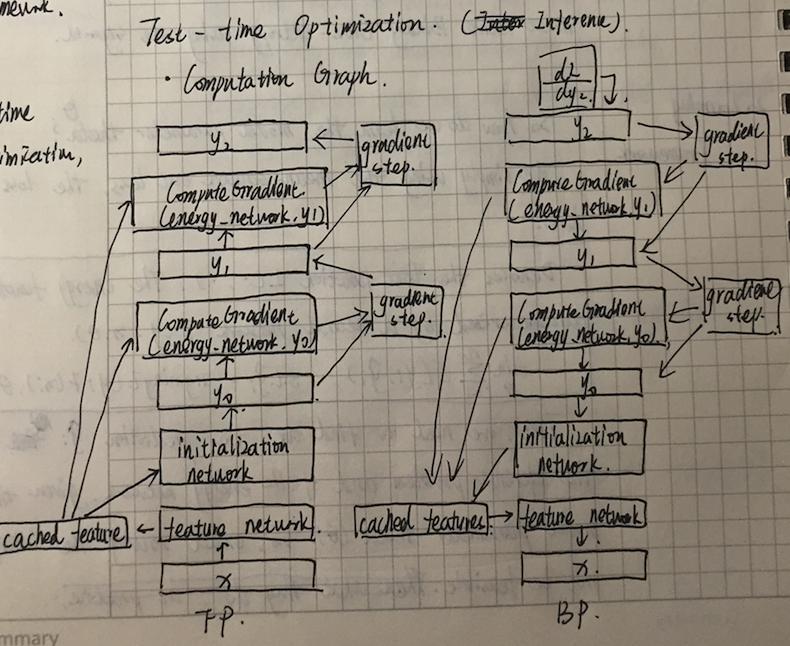 mework.
Test-time Optimization. ( Inference).
· Computation Graph.
time
imization,
y2
gradient
step.
Compute Gradient
(energy_network, y1)
y1
gradient
step.
Compute Gradient
(energy_network, y0)
y0
initialization
network
cached feature
feature network.
x
FP.
dL
dy2
y2
gradient
step.
Compute Gradient
(energy_network, y1)
y1
gradient
step.
Compute Gradient
(energy_network, y0)
y0
initialization
network.
cached features.
feature network
x.
BP.
mmary